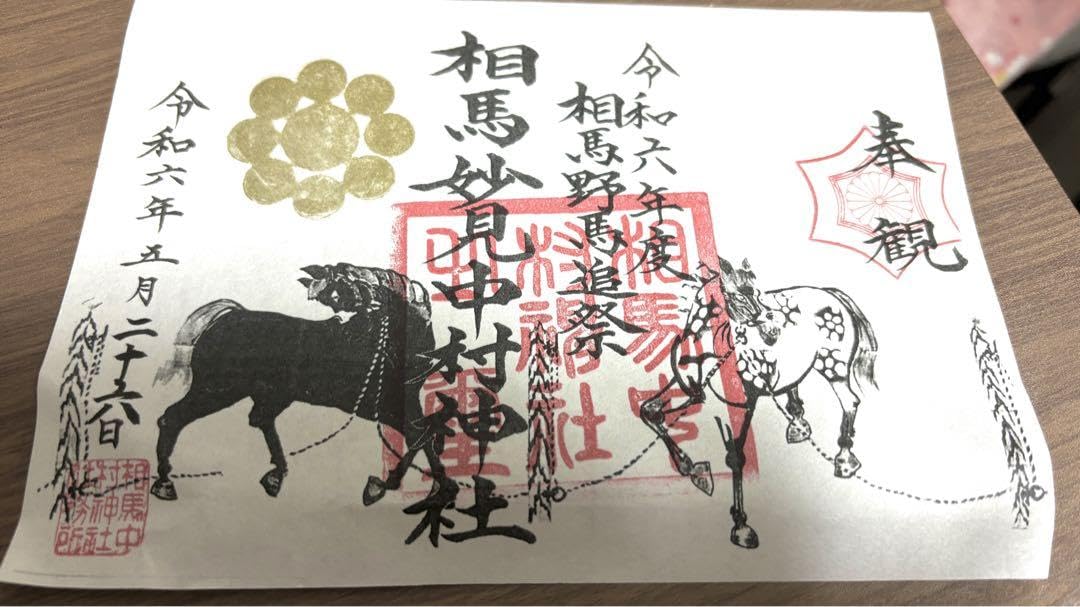 奉観
令和六年度
相馬野馬追祭
相馬妙見中村神社
令和六年五月二十六日
相馬中
村神社
相馬中
村神社
務所